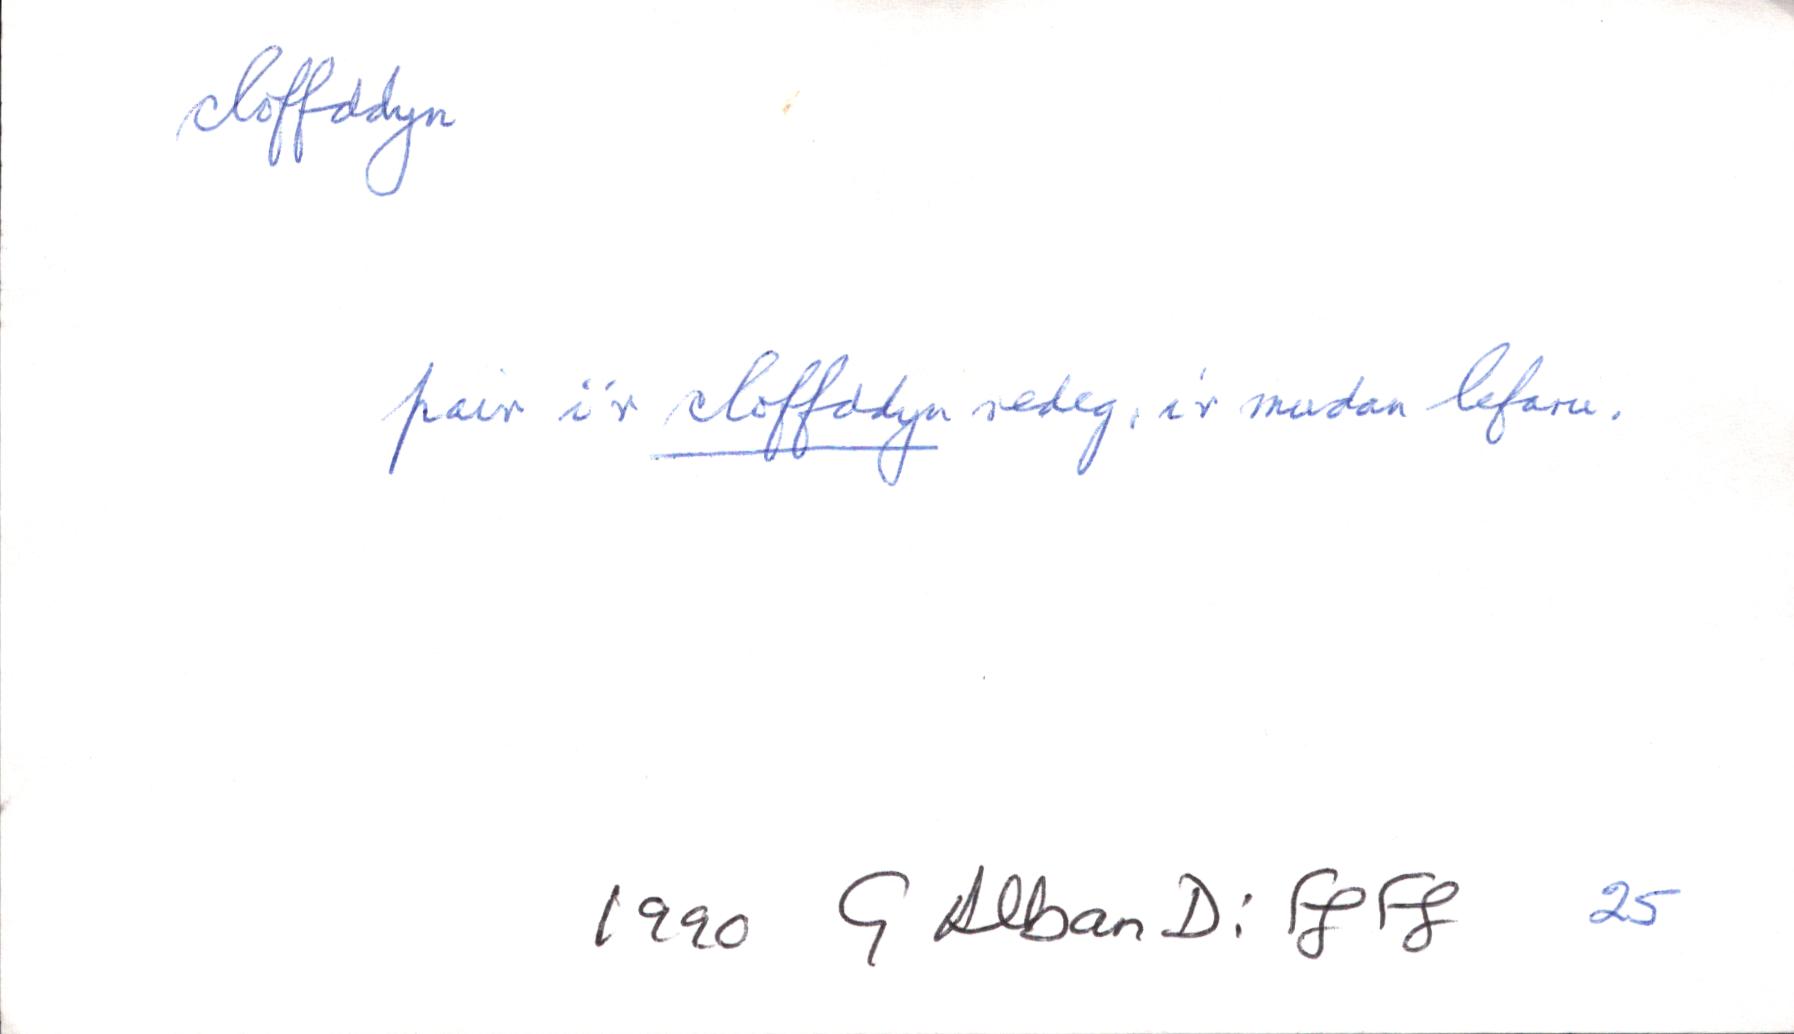 cloffddyn
pair i'r cloffddyn redeg, i'r mudan lefaru.
1990 G Alban D: Ff Ff 25